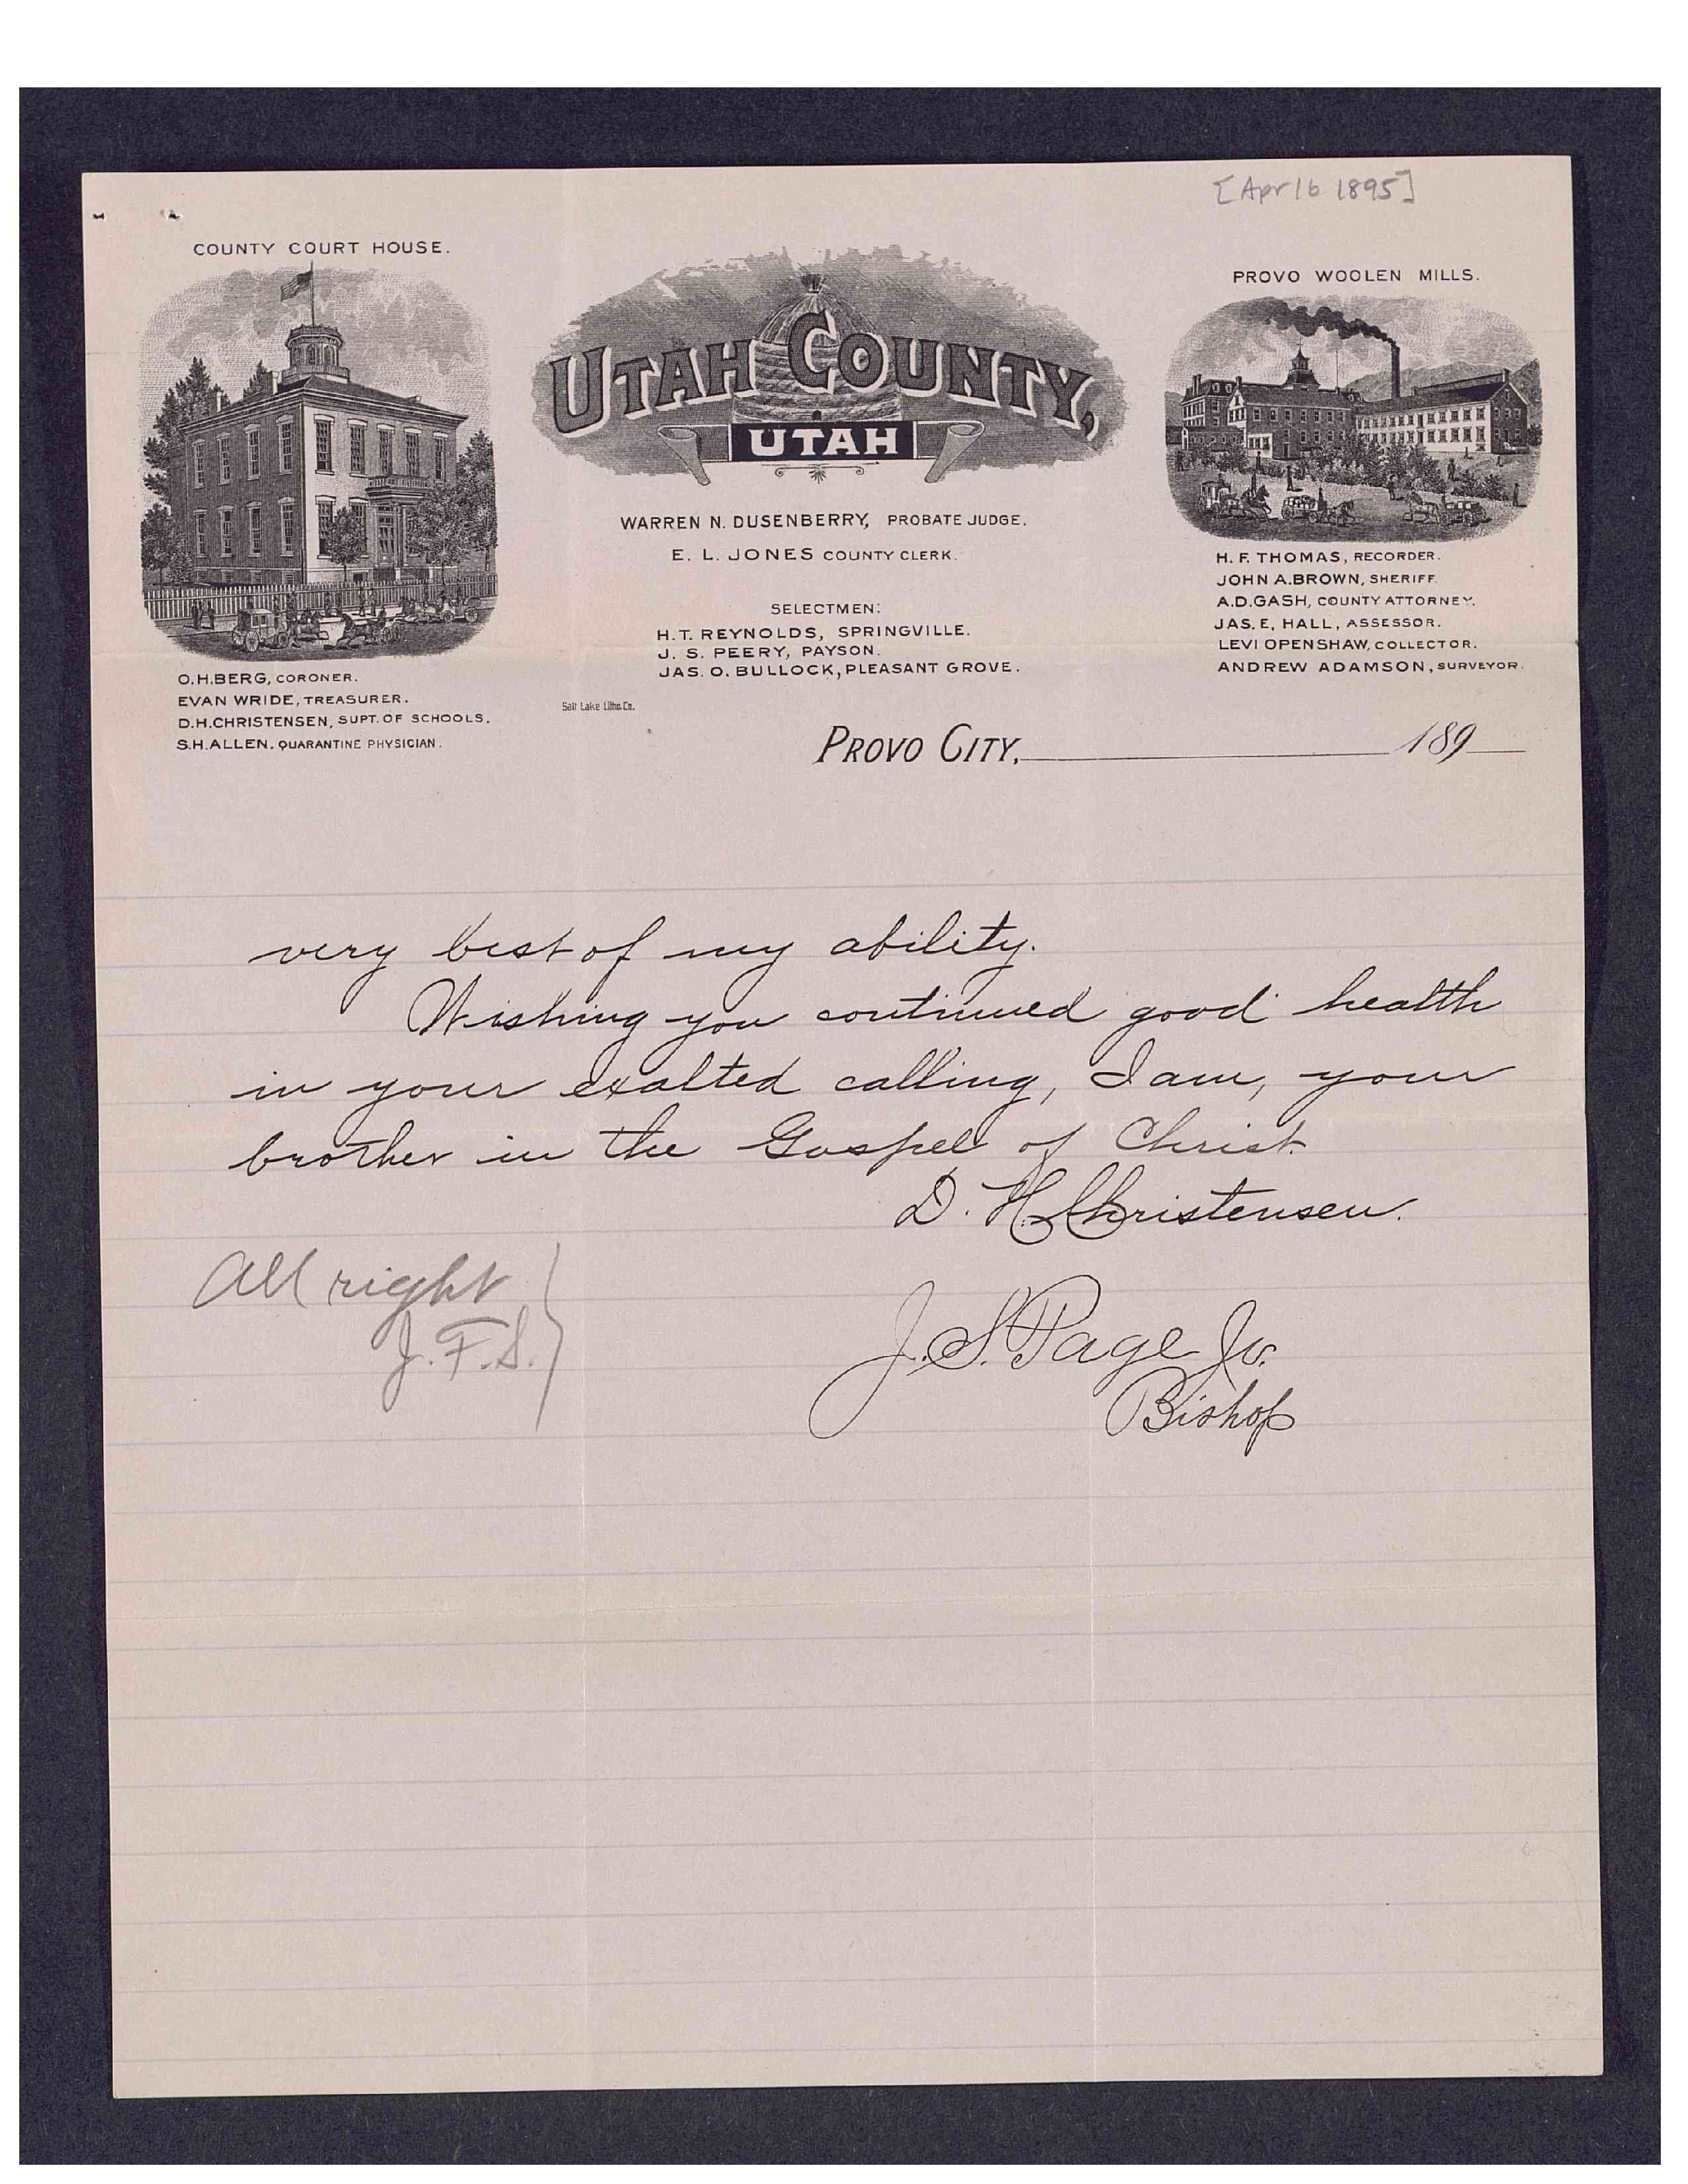 [Apr 16 1895]
COUNTY COURT HOUSE.
UTAH COUNTY,
UTAH
PROVO WOOLEN MILLS.
WARREN N. DUSENBERRY, PROBATE JUDGE.
E. L. JONES COUNTY CLERK.
SELECTMEN:
H.T. REYNOLDS, SPRINGVILLE.
J. S. PEERY, PAYSON.
JAS. O. BULLOCK, PLEASANT GROVE.
H. F. THOMAS, RECORDER.
JOHN A. BROWN, SHERIFF.
A.D. GASH, COUNTY ATTORNEY.
JAS. E, HALL, ASSESSOR.
LEVI OPENSHAW, COLLECTOR.
ANDREW ADAMSON, SURVEYOR.
O.H. BERG, CORONER.
EVAN WRIDE, TREASURER.
D.H. CHRISTENSEN, SUPT. OF SCHOOLS.
S.H. ALLEN. QUARANTINE PHYSICIAN.
Salt Lake Litho. Co.
PROVO CITY, 189
very best of my ability.
Wishing you continued good health
in your exalted calling, I am, your
brother in the Gospel of Christ.
D. H. Christensen.
All right
J. F. S.
J. S. Page Jr.
Bishop